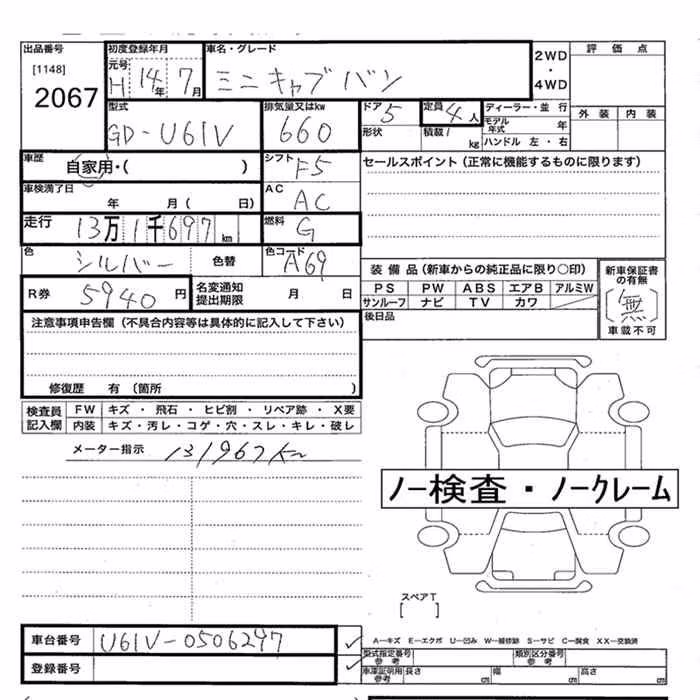 出品番号 初度登録年月 車名・グレード 2WD 評価点
[1148] 元号 ・
2067 H 14年 7月 ミニキャブバン 4WD 外装 内装
型式 排気量又はkw ドア 5 定員 4人 ディーラー・並行
GD-U61V 660 形状 積載/ kg モデル年式 年
ハンドル 左・右
車歴 自家用・( ) シフト F5 セールスポイント (正常に機能するものに限ります)
車検満了日 AC
年 月( 日) AC
走行 13万1千697km 燃料 G
色 シルバー 色替 色コード A69 装備品 (新車からの純正品に限り○印) 新車保証書の有無
R券 5940円 名変通知提出期限 月 日 PS PW ABS エアB アルミW 〔無〕
サンルーフ ナビ TV カワ 車載不可
注意事項申告欄 (不具合内容等は具体的に記入して下さい) 後日品
修復歴 有 (箇所 )
検査員記入欄 FW キズ ・ 飛石 ・ ヒビ割 ・ リペア跡 ・ X要
内装 キズ・汚レ・コゲ・穴・スレ・キレ・破レ
メーター指示 131967km
ノー検査・ノークレーム
スペアT
[ ]
車台番号 U61V-0506247 A―キズ E―エクボ U―凹み W―補修跡 S―サビ C―腐食 XX―交換済
型式指定番号 参考 類別区分番号 参考
登録番号 車庫証明用参考 長さ cm 幅 cm 高さ cm